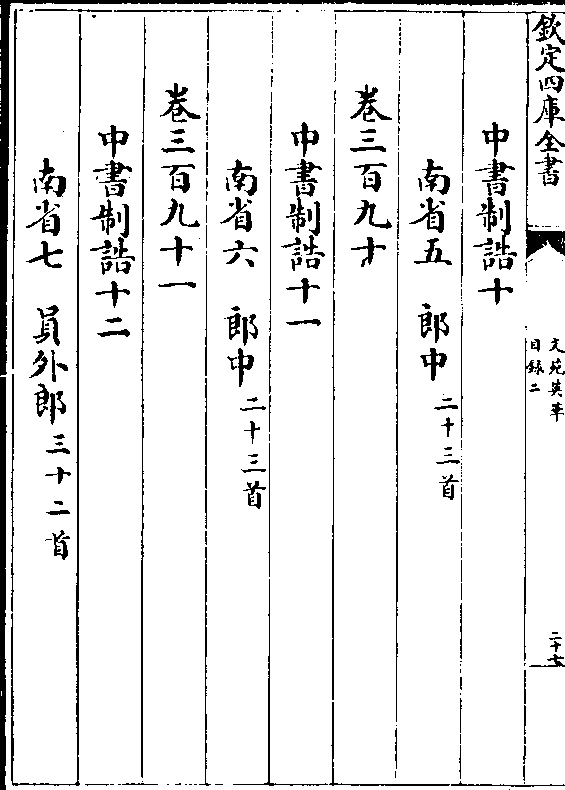 欽定四庫全書
文苑英華
目録二
二十七
中書制誥十
南省五　郎中二十三首
卷三百九十
中書制誥十一
南省六　郎中二十三首
卷三百九十一
中書制誥十二
南省七　員外郎三十二首